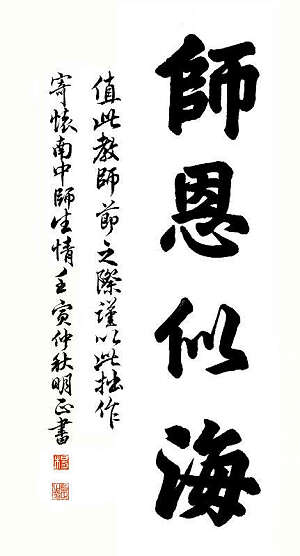 師恩似海
值此教師節之際謹以此拙作
寄懷南中師生情壬寅仲秋明正書